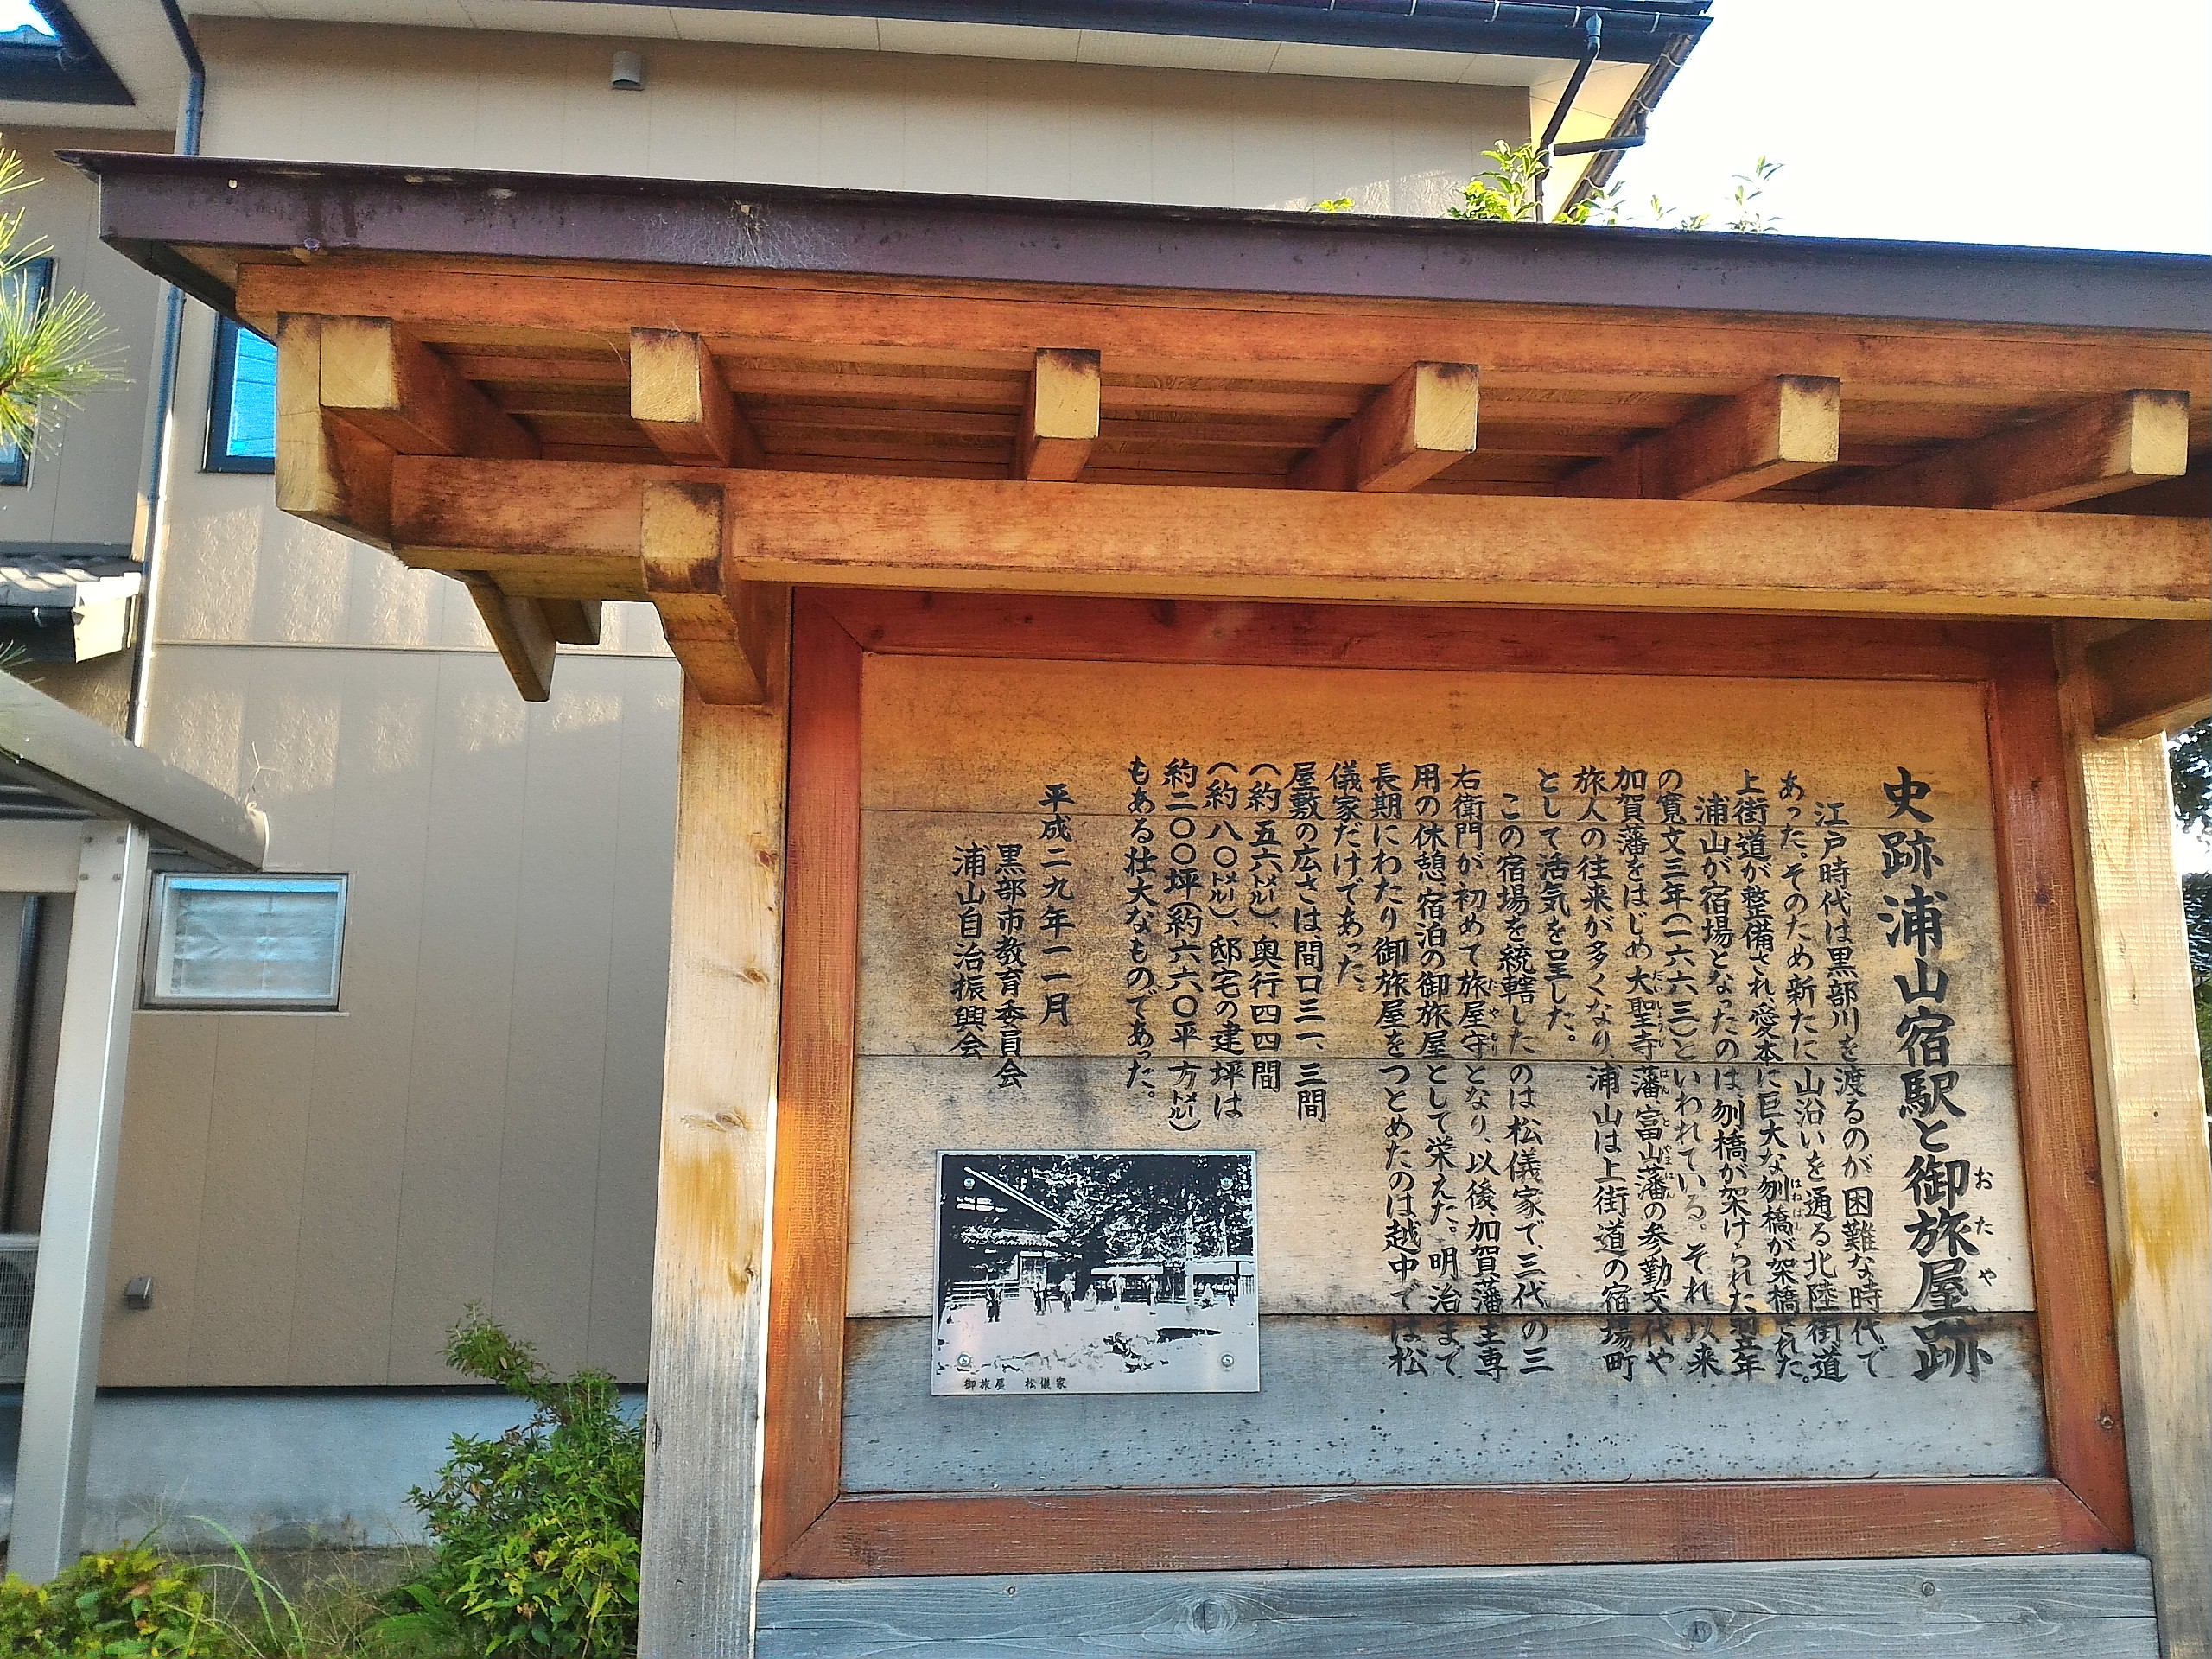 史跡 浦山宿駅と御旅屋跡
おたや
江戸時代は黒部川を渡るのが困難な時代で
あった。そのため新たに山沿いを通る北陸街道
上街道が整備され、愛本に巨大な刎橋が架橋された。
はねはし
浦山が宿場となったのは、刎橋が架けられた翌年
の寛文三年(一六六三)といわれている。それ以来
加賀藩をはじめ大聖寺藩、富山藩の参勤交代や
だいしょうじはん とやまはん
旅人の往来が多くなり、浦山は上街道の宿場町
として活気を呈した。
この宿場を統轄したのは松儀家で、三代の三
右衛門が初めて旅屋守となり、以後加賀藩主専
たやもり
用の休憩、宿泊の御旅屋として栄えた。明治まで
長期にわたり御旅屋をつとめたのは越中では松
儀家だけであった。
屋敷の広さは、間口三一、三間
(約五六メートル)、奥行四四間
(約八〇メートル)、邸宅の建坪は
約二〇〇坪(約六六〇平方メートル)
もある壮大なものであった。
平成二九年一一月
黒部市教育委員会
浦山自治振興会
御旅屋 松儀家